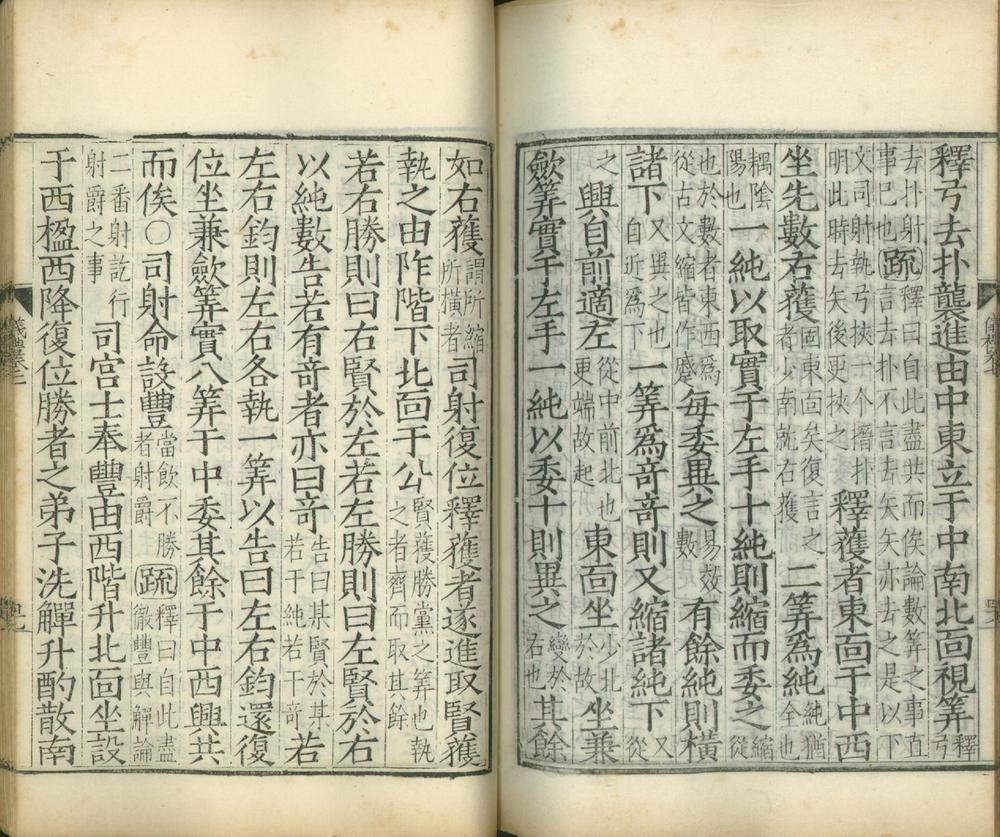 釋弓去扑襲進由中東立于中南北靣視筭釋弓
去扑射事巳也疏釋曰自此盡共而俟論數筭之事直言去扑不言去矢亦去之是以下
文司射執弓挾一个搢扑明此時去矢後更挾之釋獲者東靣于中西
坐先數右獲固東靣矣復言之者少南就右獲二筭爲純純猶全也
耦陰陽也一純以取實于左手十純則縮而委之縮從
也於數者東西爲從古文縮皆作蹙每委異之易挍數有餘純則橫
諸下又異之也自近爲下一筭爲奇奇則又縮諸純下又從
之興自前適左從中前北也更端故起東靣坐少北於故坐兼
歛筭實于左手一純以委十則異之變於右也其餘
如右獲謂所縮所橫者司射復位釋獲者遂進取賢獲
執之由阼階下北靣于公賢獲勝黨之筭也執之者齊而取其餘
若右勝則曰右賢於左若左勝則曰左賢於右
以純數告若有奇者亦曰奇告曰某賢於某若干純若干奇若
左右鈞則左右各執一筭以告曰左右鈞還復
位坐兼歛筭實八筭于中委其餘于中西興共
而俟○司射命設豐當飲不勝者射爵疏釋曰自此盡徹豐與觶論
二番射訖行射爵之事司宮士奉豐由西階升北靣坐設
于西楹西降復位勝者之弟子洗觶升酌散南